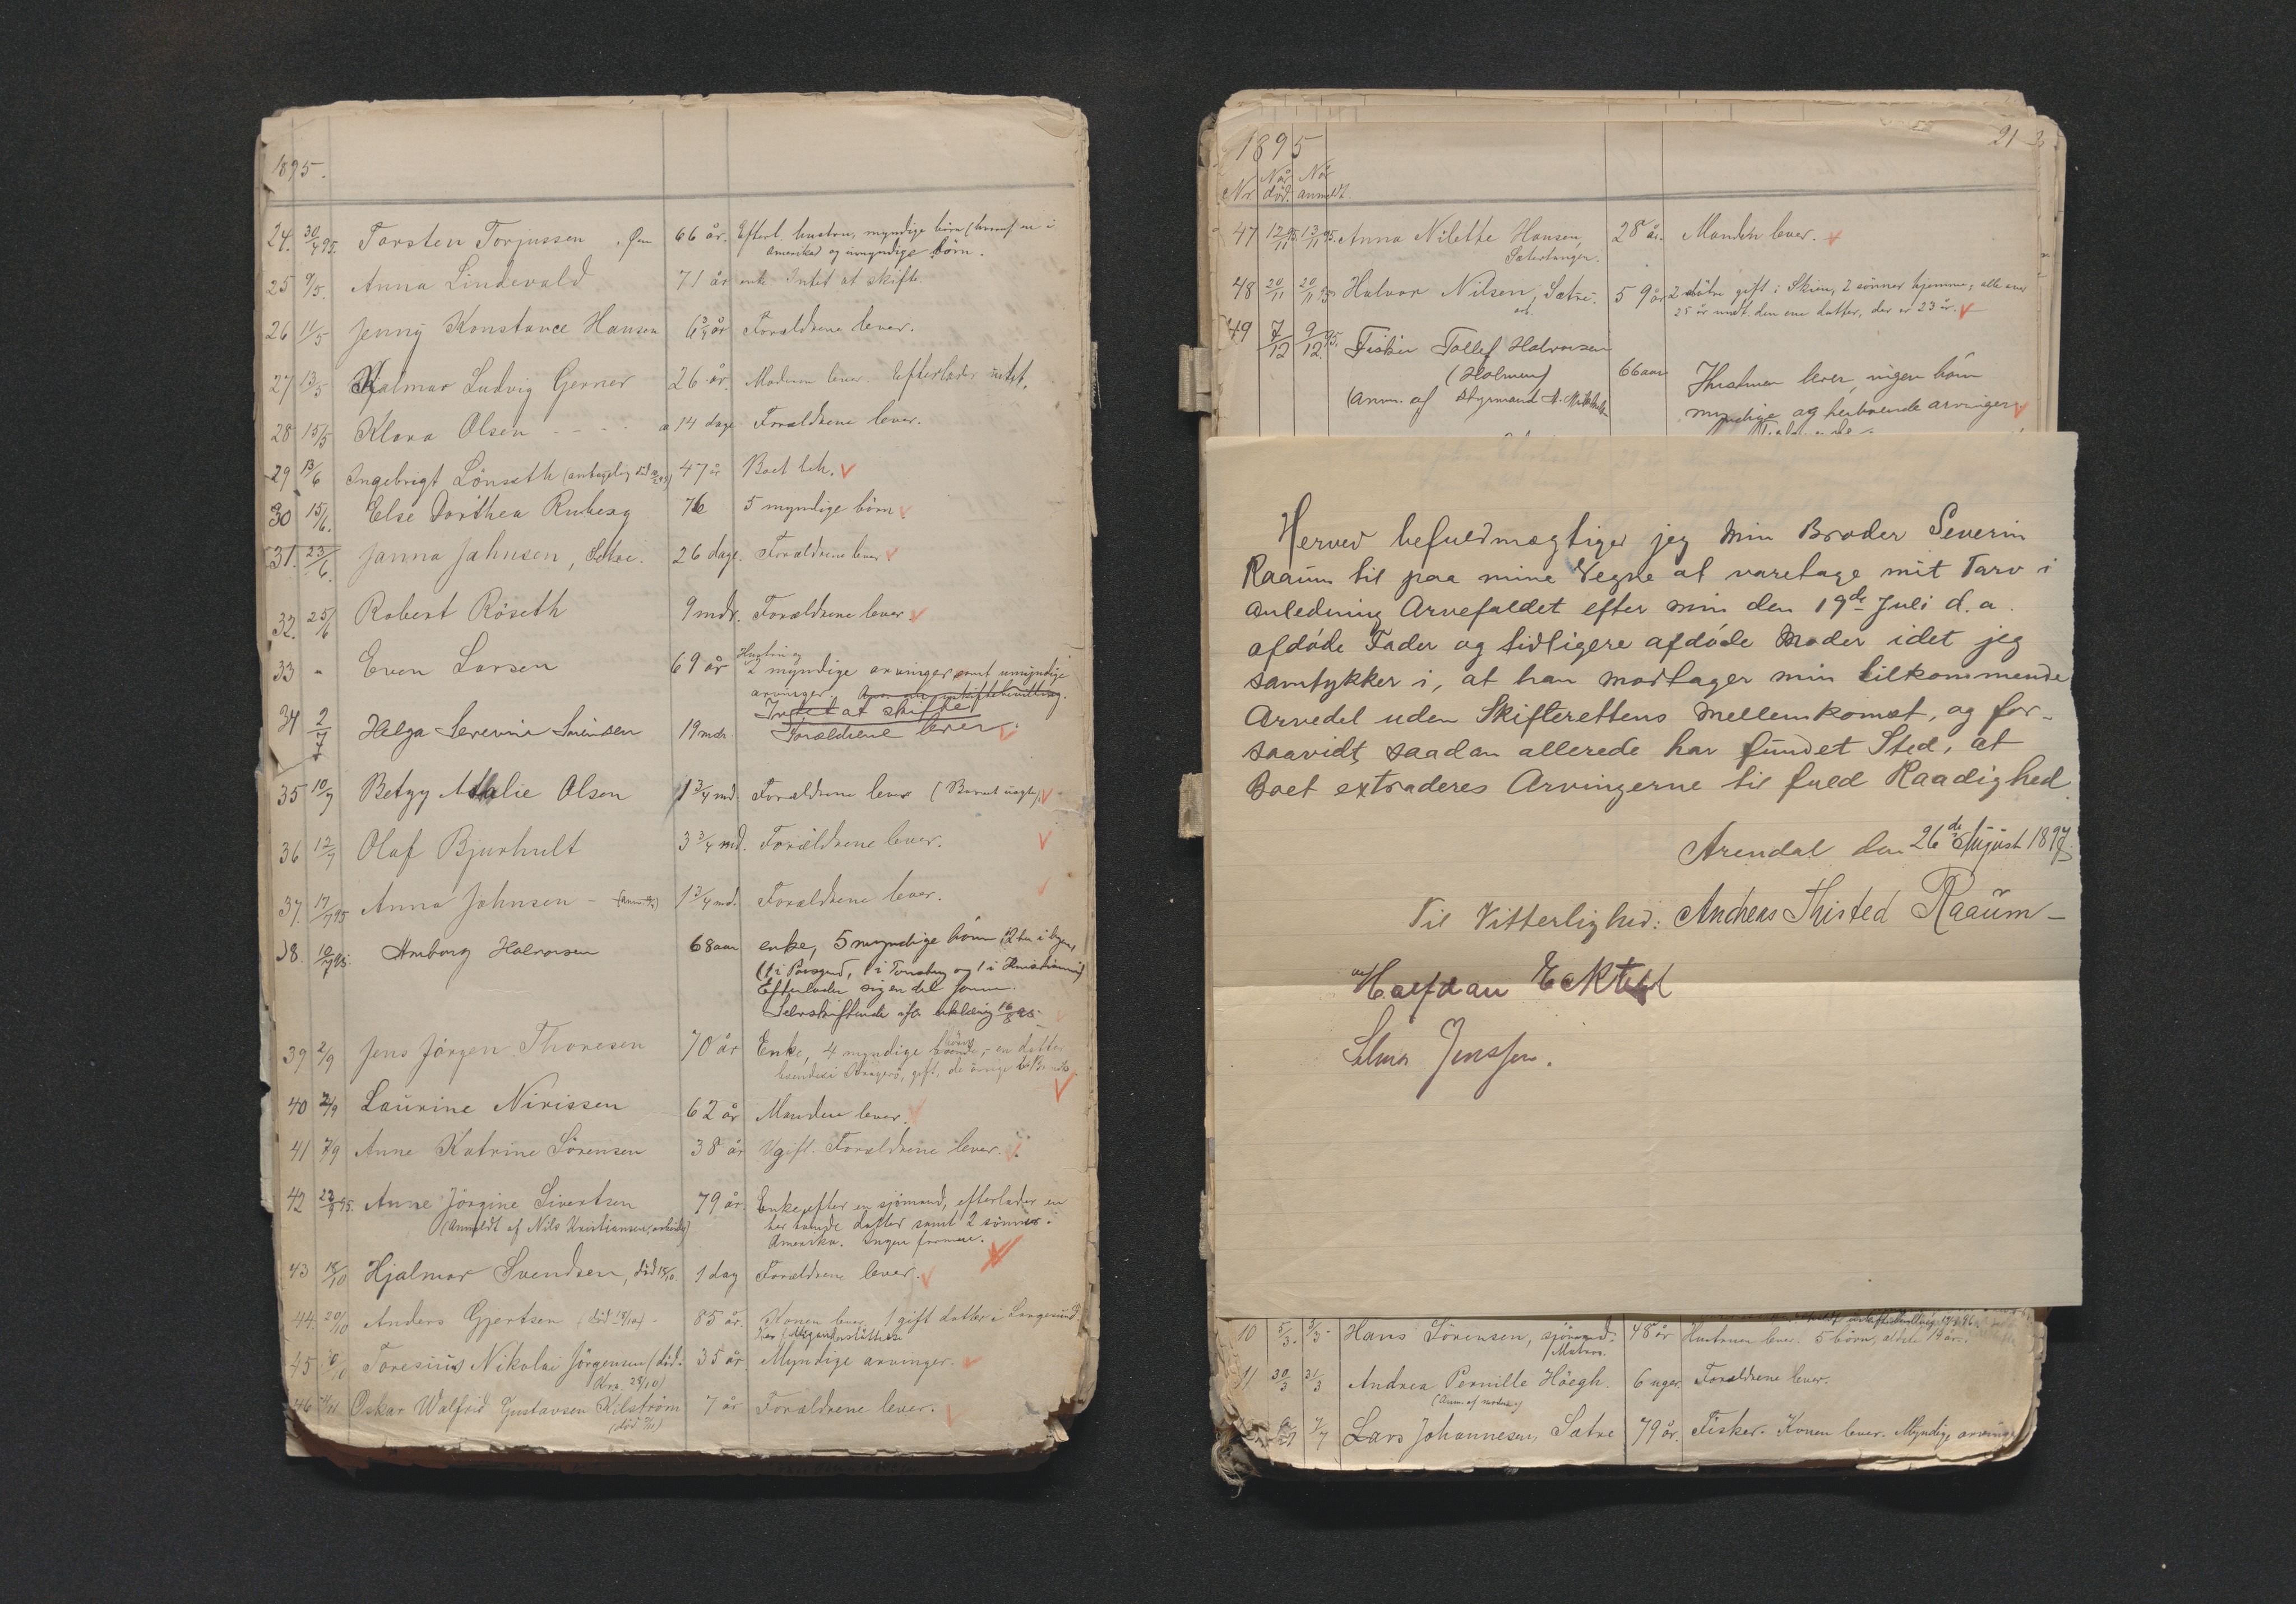 1895.
24. 30/4 95. Torsten Torjussen, Øen 66 år. Efterl. hustru, myndige börn (hvoraf en i
Amerika) og umyndige börn.
25 9/5. Anna Lindevald 71 år enke Intet at skifte.
26 11/5 Jenny Konstance Hansen 6 3/4 år Forældrene lever.
27 13/5 Hjalmar Ludvig Gerner 26 år. Moderen lever. Efterlader intet.
28 15/5 Klara Olsen 14 dage Forældrene lever.
29 13/6 Ingebrigt Lönseth 47 år Boet beh.
30 15/6. Else Dorthea Ruberg 76 5 myndige börn.
31. 23/6. Janna Jahnsen, Sætre. 26 dage. Forældrene lever
32. 25/6 Robert Röseth 9 mdr. Forældrene lever
33 " Even Larsen 69 år Hustru og
2 myndige arvinger samt umyndige
arvinger.
Intet at skifte
34 2/7 Helga Severine 19 mdr Forældrene lever
35 10/7 Betzy Athalie Olsen 1 3/4 md Forældrene lever (Barnet uægte).
36 12/7 Olaf Bjurhult 3 3/4 md. Forældrene lever.
37. 17/7 95 Anna Johnsen - 1 3/4 md. Forældrene lever.
38. Amborg Halvorsen 68 aar enke, 5 myndige börn, 2 her i byen,
(1 i Porsgrund, 1 i Tønsberg og 1 i Kristiania)
Efterlader sig en del
Selvskiftende
39 2/9 Jens Jörgen Thoresen 70 år Enke, 4 myndige börn, en datter
boende i gift, de örige
40 2/9 Laurine Nirissen 62 år Manden lever.
41 7/9 Anne Katrine Sörensen 38 år Ugift. Forældrene lever.
42 95. Anne Jörgine Sivertsen 79 år. Enke efter en sjömand, efterlader en
(Anmeldt af Nils Kristiansen, arbeider) her boende datter samt 2 sönner i
Amerika. Ingen formue.
43 18/10 Hjalmar Svendsen, död 18/10 1 dag Forældrene lever.
44. 20/10 Anders Gjertsen (död 18/10) 85 år. Konen lever, 1 gift datter i Langesund.
45 Toresius Nikolai Jörgensen (död 35 år Myndige arvinger.
Kra. 23/10)
46 Oskar Walfrid Gustavsen Kilström 7 år Forældrene lever.
1895 21
Nr. Når död. Når anmeldt.
47 12/11 95. 13/11 95. Anna Nilette Hansen, 28 år. Manden lever.
Sætertangen.
48 20/11 20/11 95 Halvor Nilsen, Sætre. 59 år 2 dötre gift i Skien, 2 sönner hjemme, alle over
25 år undt. den ene datter, der er 23 år.
49 7/12 9/12 95. Fisker Tollef Halvorsen
(Holmen) 66 aar Hustruen lever, ingen börn
(Anm. af Styrmand myndige og herboende arvinger
Herved befuldmægtiger jeg min Broder Severin
Raaum til paa mine Vegne at varetage mit Tarv i
Anledning Arvefaldet efter min den 19de Juli d. a.
afdøde Fader og tidligere afdøde Moder idet jeg
samtykker i, at han modtager min tilkommende
Arvedel uden Skifterettens Mellemkomst, og for-
saavidt saadan allerede har fundet Sted, at
Boet extraderes Arvingerne til fuld Raadighed.
Arendal den 26de August 1897.
Til Vitterlighed: Andreas Thisted Raaum -
Halfdan
Selma Jenssen.
10 5/3. 5/3 Hans Sörensen, sjömand. 48 år Hustruen lever. 5 börn, ældste 14 år.
/Matros.
11 30/3 31/3 Andrea Pernille Höegh. 6 uger. Forældrene lever.
(Anm. af moderen)
7/4 Lars Johannesen, Sætre 79 år. Fisker. Konen lever. Myndige arvinger